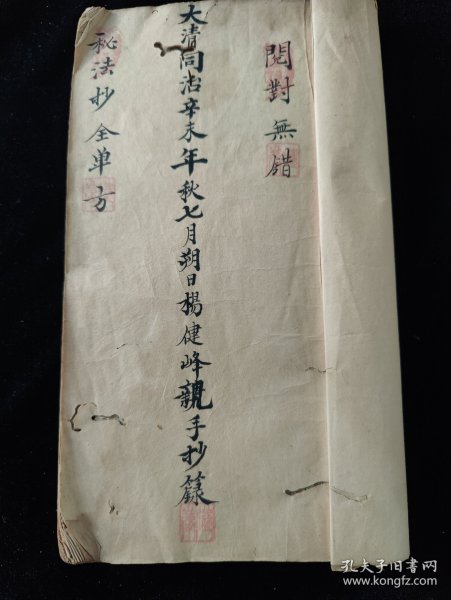 閱對無錯
大清同治辛未年秋七月朔日楊健峰親手抄錄
秘法抄全单方
孔夫子旧书网
www.kongfz.com